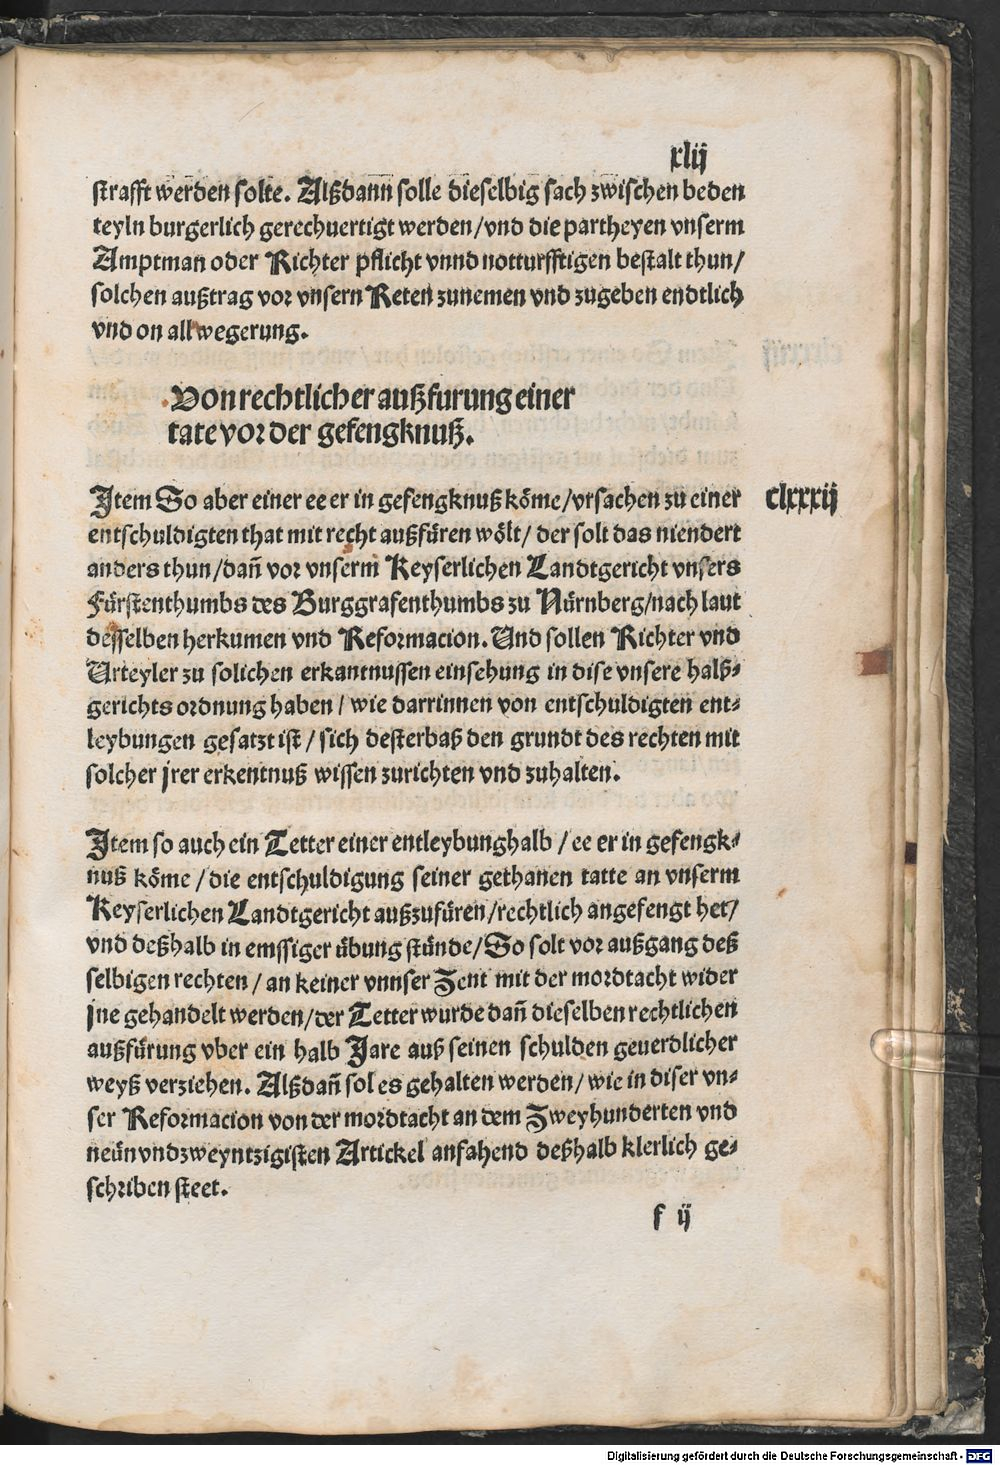 xlij
strafft werden solte. Alßdann solle dieselbig sach zwischen beden
teyln burgerlich gerechuertigt werden/vnd die partheyen vnserm
Amptman oder Richter pflicht vnnd notturfftigen bestalt thun/
solchen außtrag vor vnsern Reten zunemen vnd zugeben endtlich
vnd on all wegerung.
Von rechtlicher außfurung einer
tate vor der gefengknuß.
Item So aber einer ee er in gefengknuß köme/vrsachen zu einer
clxxxij
entschuldigten that mit recht außfüren wölt/ der solt das niendert
anders thun/dañ vor vnserm Keyserlichen Landtgericht vnsers
Fürstenthumbs des Burggrafenthumbs zu Nürnberg/nach laut
desselben herkumen vnd Reformacion. Und sollen Richter vnd
Urteyler zu solichen erkantnussen einsehung in dise vnsere halß⸗
gerichts ordnung haben / wie darrinnen von entschuldigten ent⸗
leybungen gesatzt ist / sich desterbaß den grundt des rechten mit
solcher jrer erkentnuß wissen zurichten vnd zuhalten.
Item so auch ein Tetter einer entleybunghalb / ee er in gefengk⸗
nuß köme / die entschuldigung seiner gethanen tatte an vnserm
Keyserlichen Landtgericht außzufüren/rechtlich angefengt het/
vnd deßhalb in emssiger übung stünde/ So solt vor außgang deß
selbigen rechten / an keiner vnnser Zent mit der mordtacht wider
jne gehandelt werden/der Tetter wurde dañ dieselben rechtlichen
außfürung vber ein halb Jare auß seinen schulden geuerdlicher
weyß verziehen. Alßdañ sol es gehalten werden/ wie in diser vn⸗
ser Reformacion von der mordtacht an dem Zweyhunderten vnd
neünvndzweyntzigisten Artickel anfahend deßhalb klerlich ge⸗
schriben steet.
f ij
Digitalisierung gefördert durch die Deutsche Forschungsgemeinschaft - DFG